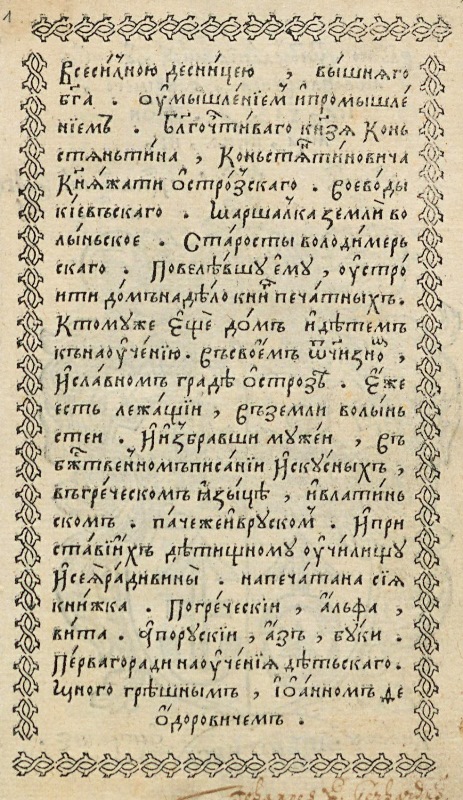 1
Всеси́лною десни́цею , вы́шняго
бг҃а . оу҆мышле́нїем и҆промышле́
нїемъ . Бл҃гочти́ваго кн҃зѧ Конь
стѧньти́на , Коньстѧти́новича
Кнѧ́жати Ѻ҆стро́зскаго . Воево́ды
кі́евъскаго . Маршалка земли во
лы́ньское . Ста́росты володимерь
скаго . Повелѣ́вшу є҆му , оу҆стро́
ити до́мъ на дѣ́ло кни́г печа́тныхъ.
Ктомуже є҆щѐ до́мъ и҆дѣ́темъ
къ наоу҆че́нїю. Въсвое́мъ ѿчи́зномъ ,
И҆сла́вномъ гра́дѣ Ѻ҆стро́зѣ . Є҆́же
есть лежа́щїи , Въземли волы́нь
стеи . И҆и҆збра́вши муже́и , въ
бж҃твенномъ писа́нїи И҆ску́сныхъ ,
въгре́ческомъ ꙗ҆зы́цѣ , и҆влати́нь
скомъ . па́че же и҆вруском . И҆при
ста́ви и҆́хъ дѣтищному оу҆чи́лищу
И҆сеꙗ̀ ра́ди вины̀ . напеча́тана сїѧ
кни́жка . Погре́чески , А҆льфа ,
ви́та . А҆поруски , А҆зъ , бу́ки .
Пе́рваго ради наоу҆че́нїѧ дѣ́тьскаго.
Мно́го грѣ́шнымъ , І҆ѡа́нномъ Ѳе
ѻ҆доровичемъ .